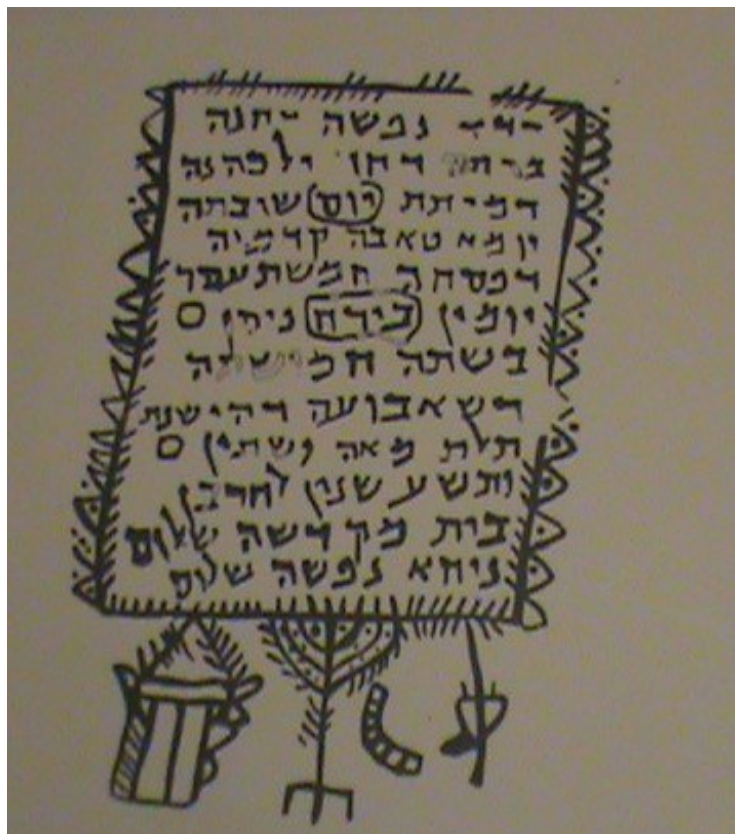 נפשה
ברתה
דמיתת יום שובתה
יומא טאבה קדמיה
דפסחה חמשת עשר
יומין בירח ניסן
בשתה
דשאבועה דהי שנת
תלת מאה ושתין
ותשע שנין לחרבן
בית מקדשה שלום
ניחא נפשה שלום